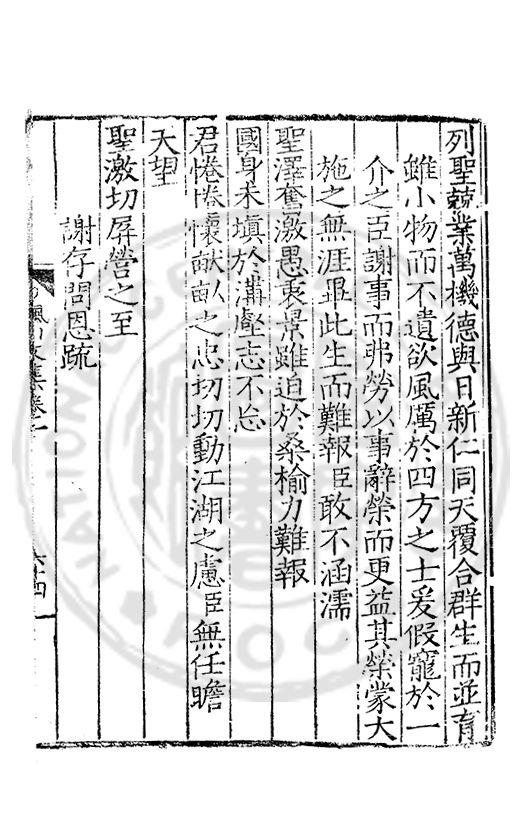 列聖兢業萬機德與日新仁同天覆合群生而並育
雖小物而不遺欲風厲於四方之士爰假寵於一
介之臣謝事而弗勞以事辭榮而更益其榮蒙大
施之無涯畢此生而難報臣敢不涵濡
聖澤奮激愚衷景雖迫於桑榆力難報
國身未填於溝壑志不忘
君惓惓懷畎畝之忠切切動江湖之慮臣無任瞻
天望
聖激切屏營之至
謝存問恩疏
文集卷
六十四
NATIONAL CENTRAL